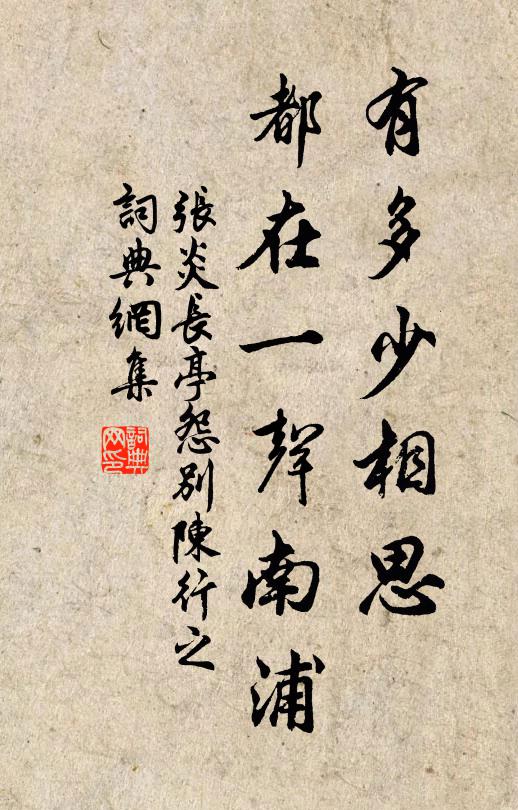 有多少相思
都在一聲南浦
張炎長亭怨別陳行之
詞典網集
詞典网印